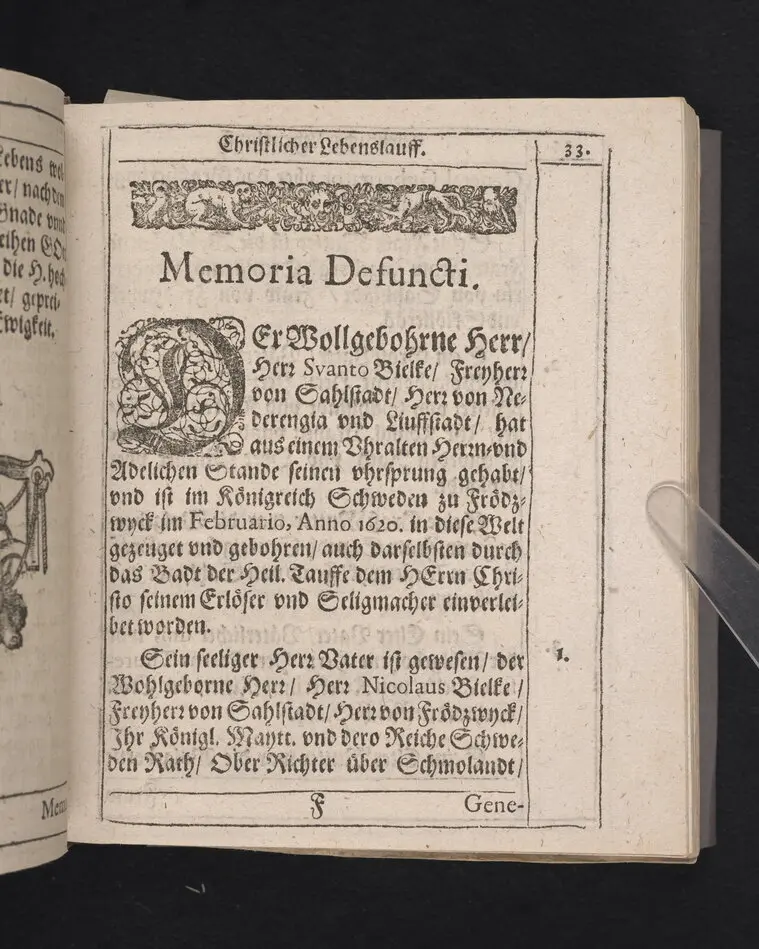 Lebens
er/ nach den
Gnade vnd
die H. hoch
et/ geprei-
Ewigkeit.
Christlicher Lebenslauff.
33.
Memoria Defuncti.
DEr Wollgebohrne Herr/
Herr Svanto Bielke/ Freyherr
von Sahlstadt/ Herr von Ne-
derengia vnd Liuffstadt/ hat
aus einem Vhralten Herrn-vnd
Adelichen Stande seinen vhrsprung gehabt/
vnd ist im Königreich Schweden zu Frödz-
wyck im Februario, Anno 1620. in diese Welt
gezeuget vnd gebohren/ auch darselbsten durch
das Badt der Heil. Tauffe dem HErrn Chri-
sto seinem Erlöser vnd Seligmacher einverlei-
bet worden.
Sein seeliger Herr Vater ist gewesen/ der
1.
Wohlgeborne Herr/ Herr Nicolaus Bielke/
Freyherr von Sahlstadt/ Herr von Frödzwyck/
Ihr Königl. Maytt. vnd dero Reiche Schwe-
den Rath/ Ober Richter über Schmolandt/
F
Gene-